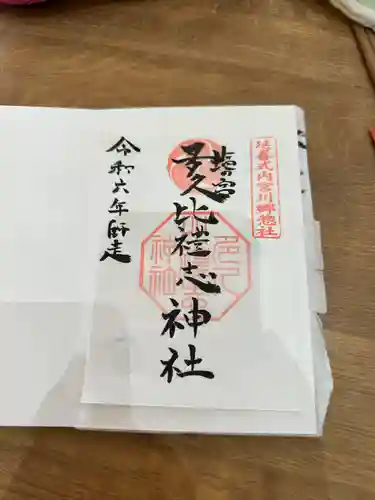 延喜式内宮川郷惣社
塩宮
多久比禮志神社
令和六年師走